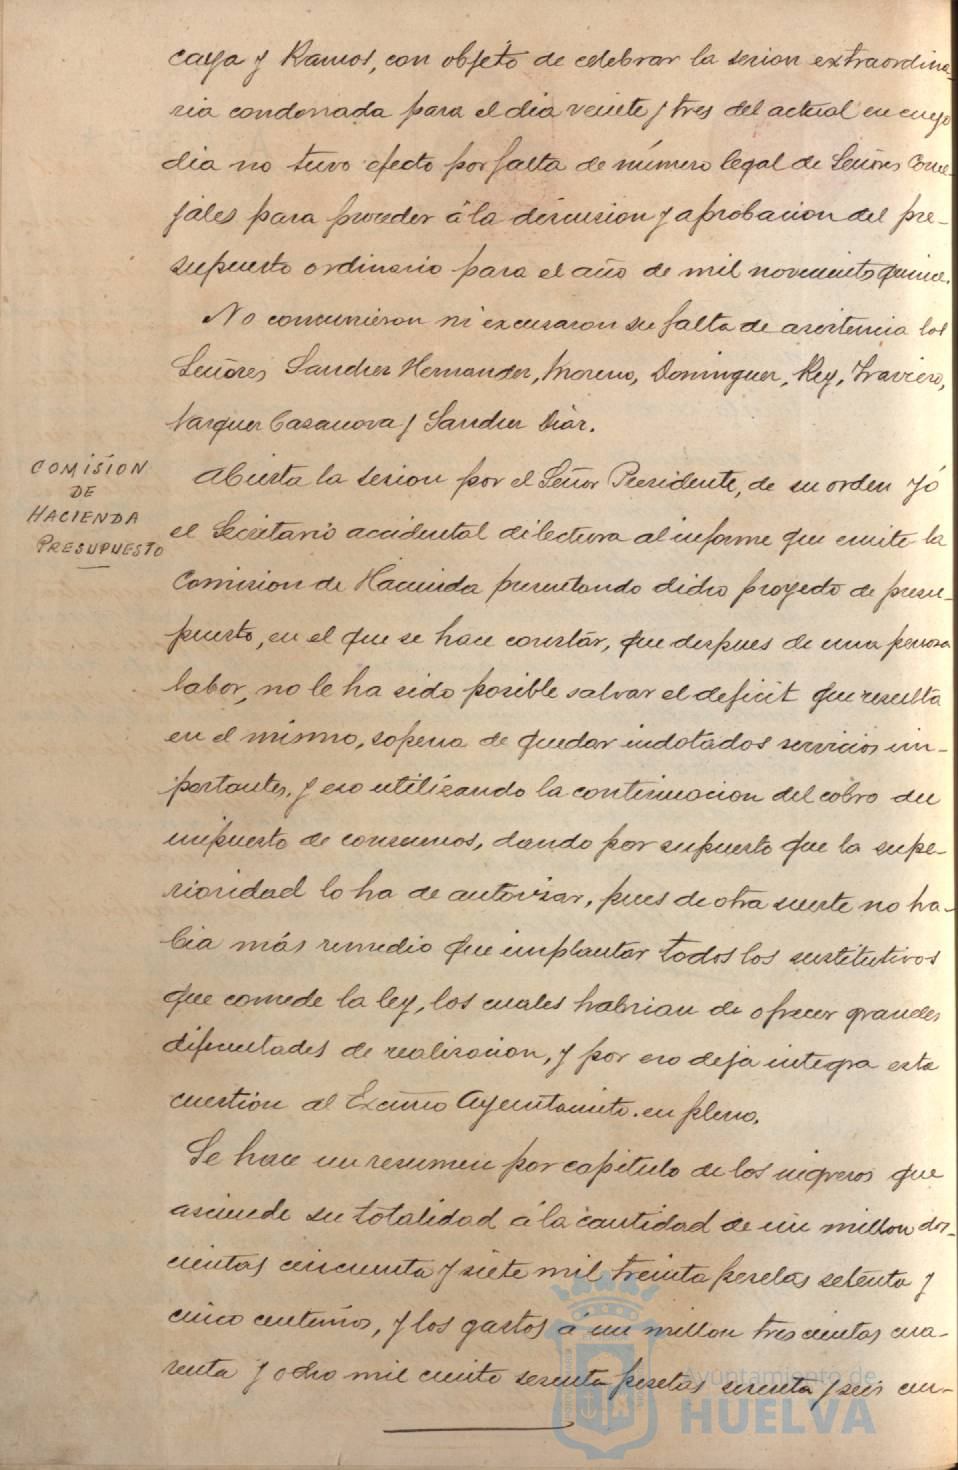 caya y Ramos, con objeto de celebrar la sesion extraordina-
ria condonada para el dia veinte y tres del actual en cuyo
dia no tuvo efecto por falta de número legal de Señores Conce-
jales para proceder á la discusion y aprobacion del pre-
supuesto ordinario para el año de mil novecientos quince.
No concurrieron ni excusaron su falta de asistencia los
Señores Sanchez Hernandez, Moreno, Dominguez, Rey, Traviero,
Vazquez Casanova y Sanchez Diaz.
COMISION
DE
HACIENDA
PRESUPUESTO
Abierta la sesion por el Señor Presidente, de su orden yó
el Secretario accidental di lectura al informe que emite la
Comision de Hacienda presentando dicho proyecto de presu-
puesto, en el que se hace constár, que despues de una penosa
labor, no le ha sido posible salvar el deficit que resulta
en el mismo, sopena de quedar indotados servicios im-
portantes, y eso utilizando la continuacion del cobro del
impuesto de consumos, dando por supuesto que la supe-
rioridad lo ha de autorizar, pues de otra suerte no ha-
bia más remedio que implantar todos los sustitutivos
que concede la ley, los cuales habrian de ofrecer grandes
dificultades de realizacion, y por eso deja integra esta
cuestión al Excmo Ayuntamiento en pleno.
Se hace un resumen por capitulo de los ingresos que
asciende su totalidad á la cantidad de un millon dos-
cientas cincuenta y siete mil treinta pesetas setenta y
cinco centimos, y los gastos á un millon trescientas cua-
renta y ocho mil ciento sesenta pesetas sesenta y seis cen-
Ayuntamiento de
HUELVA